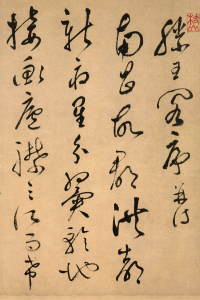 滕王閣序并詩
南昌故郡洪都
新府星分翼軫地
接衡廬襟三江而帶